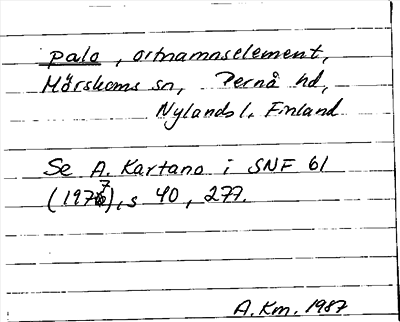 palo, ortnamnselement,
Mörskoms sn, Pernå hd,
Nylands l. Finland
Se A. Kartano i SNF 61
(1977), s 40, 277.
A.Km. 1987